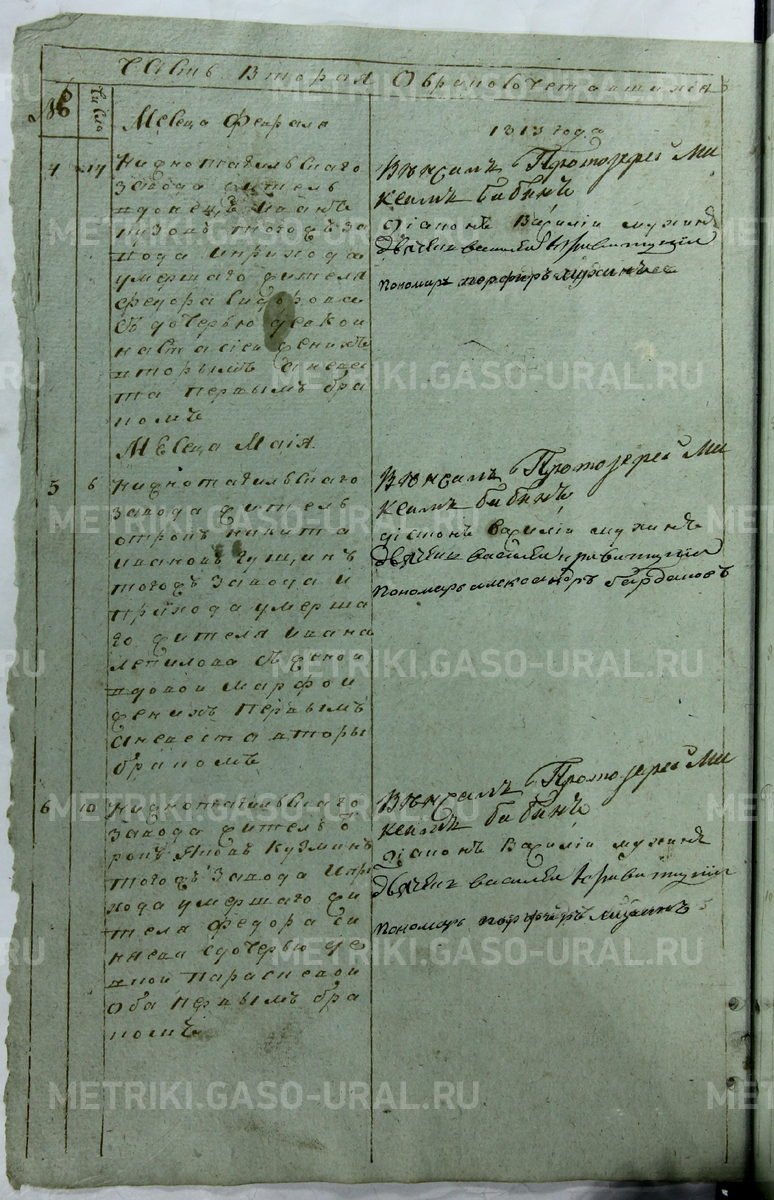 Часть Вторая О бракосочетавшихся
№ Число
Месеца Февраля 1813 года
4 14 Нижнотагильскаго
завода житель
вдовец Иванъ
тогожъ за
вода иприхода
умершаго жителя
Федора Сидорова
съ дочерью девкой
настасieй женихъ
вторымъ аневес
та первымъ бра
комъ
Венчалъ Протоiерей Ми
хаилъ Бабинъ
Дiаконъ Василiй Мухинъ
Дьячекъ василей
пономарь порфиръ мухинъ
Месеца Маiя
5 6 Нижнотагильскаго
завода житель
отрокъ никита
ивановъ гущинъ
тогожъ завода и
прихода умерша
го жителя ивана
лепилова съ женой
вдовой марфой
женихъ первымъ
аневеста вторы
бракомъ
Венчалъ Протоiерей Ми
хаилъ Бабинъ
дiаконъ василiй мухинъ
Дьячекъ василей
пономарь александръ
6 10 Нижнотагильскаго
завода житель о
рокъ Яковъ Кузминъ
тогожъ завода ипри
хода умершаго жи
теля Федора
сдочерью де
вкой параскевой
оба первымъ бра
комъ
Венчалъ Протоiерей Ми
хаилъ Бабинъ
Дiаконъ Василiй мухинъ
Дьячекъ василей
пономарь порфиръ мухинъ
METRIKI.GASO-URAL.RU